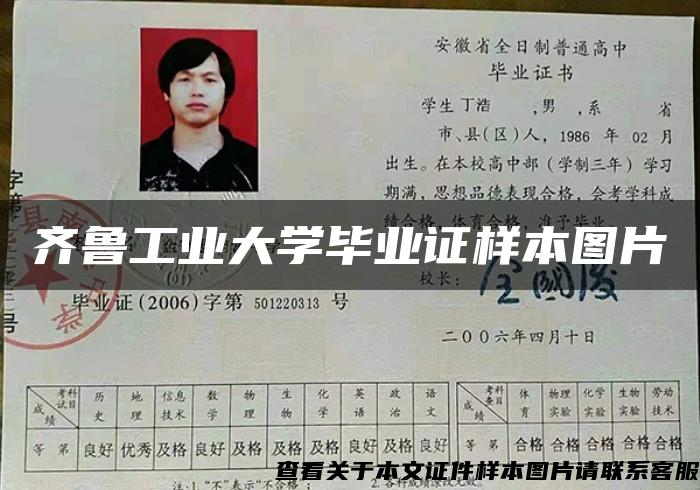 安徽省全日制普通高中
毕业证书
学生丁浩 ,男 ,系 省
市、县(区)人，1986 年 02 月
出生。在本校高中部（学制三年）学习
期满，思想品德表现合格，会考学科成
绩合格，体育合格，准予毕业。
齐鲁工业大学毕业证样本图片
校长：
毕业证(2006)字第 501220313 号
二〇〇六年四月十日
考试科目 历史 地理 信息技术 数学 物理 生物 化学 英语 政治 语文
成绩等第 良好 优秀 及格 良好 及格 及格 及格 良好 及格 良好
考查科目 体育 物理实验 化学实验 生物实验 劳动技术
成绩 合格 合格 合格 合格 合格
查看关于本文证件样本图片请联系客服
注:1."不"表示"不合格"